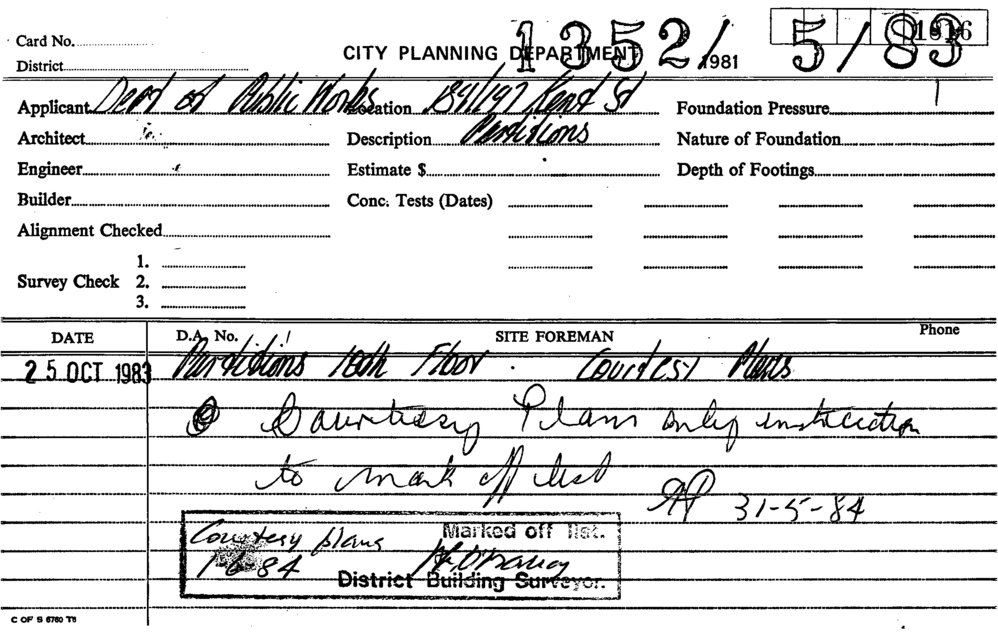 Card No.
CITY PLANNING DEPARTMENT 1352/1981 5/83 1816
District
Applicant Dept of Public Works Location 189/197 Kent St Foundation Pressure
Architect Description Partitions Nature of Foundation
Engineer Estimate $ Depth of Footings
Builder Conc. Tests (Dates)
Alignment Checked
1.
Survey Check 2.
3.
DATE D.A. No. SITE FOREMAN Phone
25 OCT 1983 Partitions 10th Floor. Courtesy Plans
Courtesy Plans only instruction
to mark off list
31-5-84
Courtesy plans Marked off list.
1-6-84
District Building Surveyor.
C OF S 6760 T8